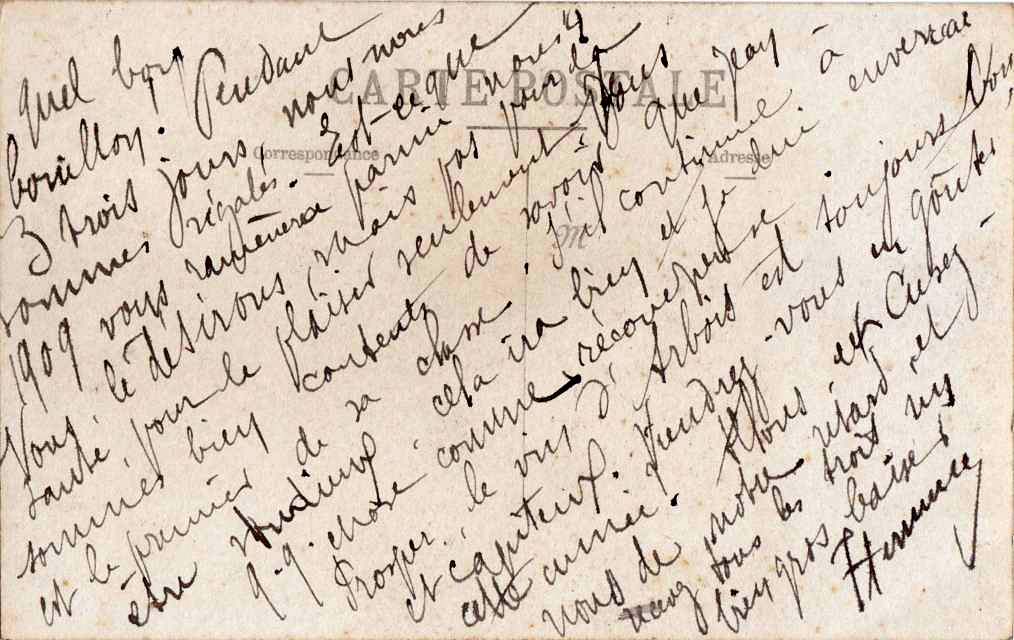 CARTE POSTALE
Correspondance
Adresse
M
quel bon
bouillon. Pendant
3 trois jours nous nous
sommes régalés. Est-ce que
1909 vous ramènera parmi nous
Nous le désirons, mais pas pour la
santé, pour le plaisir seulement. Nous
sommes bien contents de savoir que Jean
est le premier de sa classe. S'il continue à
être studieux, cela ira bien et je lui enverrai
q.q. chose comme récompense.
Prosper, le vin d'Arbois est toujours bon
et capiteux. Viendrez-vous en goûter
cette année.
nous de notre retard et
tous les trois un
bien gros baiser